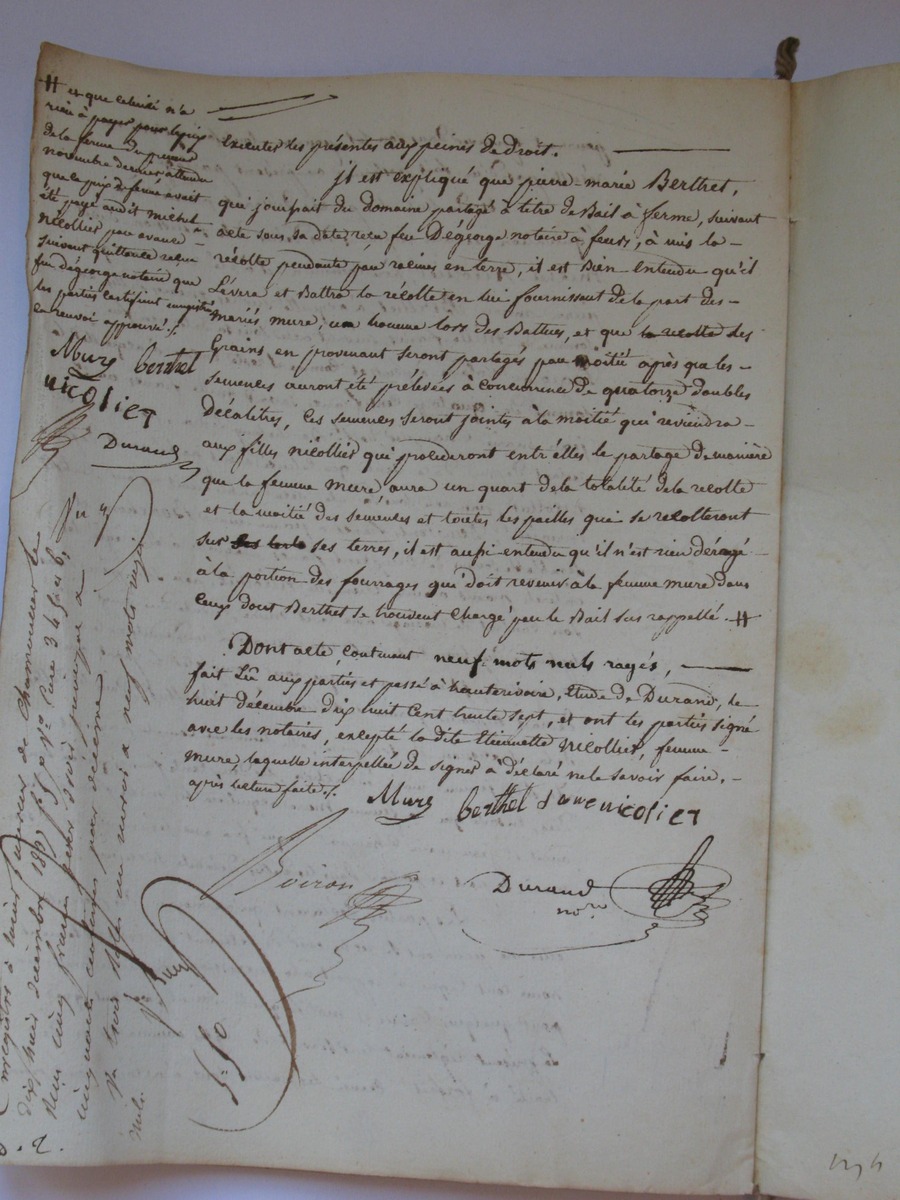 # et que celui-ci n'a
rien à payer pour le prix
de la ferme du premier
novembre dernier attendu
que le prix de ferme avait
été payé audit michel
Nicollier par avance
suivant quittance reçue
feu dégeorge notaire que
les parties certifient enregistrée
en renvoi approuvé ./.
Mure berthet
nicolier
Durand
Executer les présentes aux peines de droit.
il est expliqué que pierre-marie Berthet,
qui jouissait du domaine partagé à titre de Bail à ferme, suivant
acte sous sa date reçu feu Degeorge notaire à feurs, à mis la
récolte pendante par racines en terre, il est Bien entendu qu'il
Lévera et Battra la récolte en lui fournissant de la part des
mariés mure, un homme lors des Battues, et que la récolte des
Grains en provenant seront partagés par moitié après que les
semences auront été prélevées à concurrence de quatorze doubles
Décalitres, Ces semences seront jointes à la moitié qui reviendra
aux filles nicollier qui procéderont entr'elles le partage de manière
que la femme mure aura un quart de la totalité de la récolte
et la moitié des semences et toutes les pailles qui se récolteront
sur ses terres, il est aussi entendu qu'il n'est rien dérogé
à la portion des fourrages qui doit revenir à la femme mure dans
ceux dont Berthet se trouvent chargé par le Bail sus rappellé. #
Dont acte, contenant neuf mots nuls rayés,
fait Lû aux parties et passé à hauterivoire, Etude de Durand, le
huit décembre dix huit cent trente sept, et ont les parties signé
avec les notaires, excepté la dite Etiennette Nicollier, femme
mure, laquelle interpellée de signer à déclaré ne le savoir faire,
après lecture faite ./.
Mure berthet nicolier
Boiron
Durand
nore
Enregistré à
dix huit décembre 1837
cinq francs
cinquante centimes pour décime
neuf mots rayés
nuls.
5=50